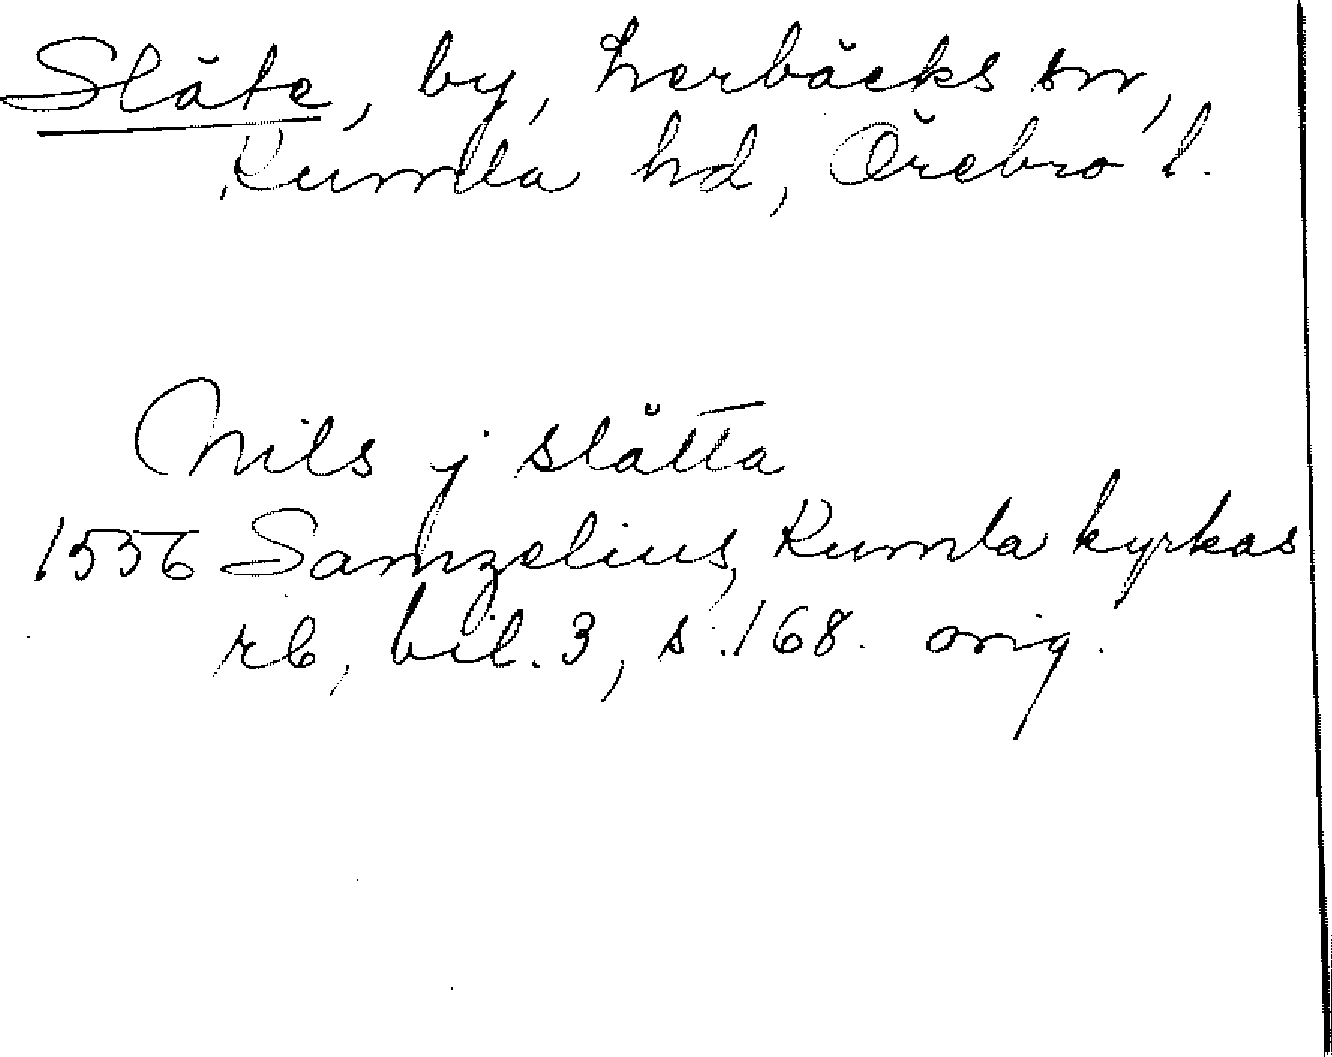 Slåte, by, Lerbäcks sn,
Kumla hd, Örebro l.
Nils j slåtta
1556 Samzelius, Kumla kyrkas
rb, bil. 3, s. 168. orig.